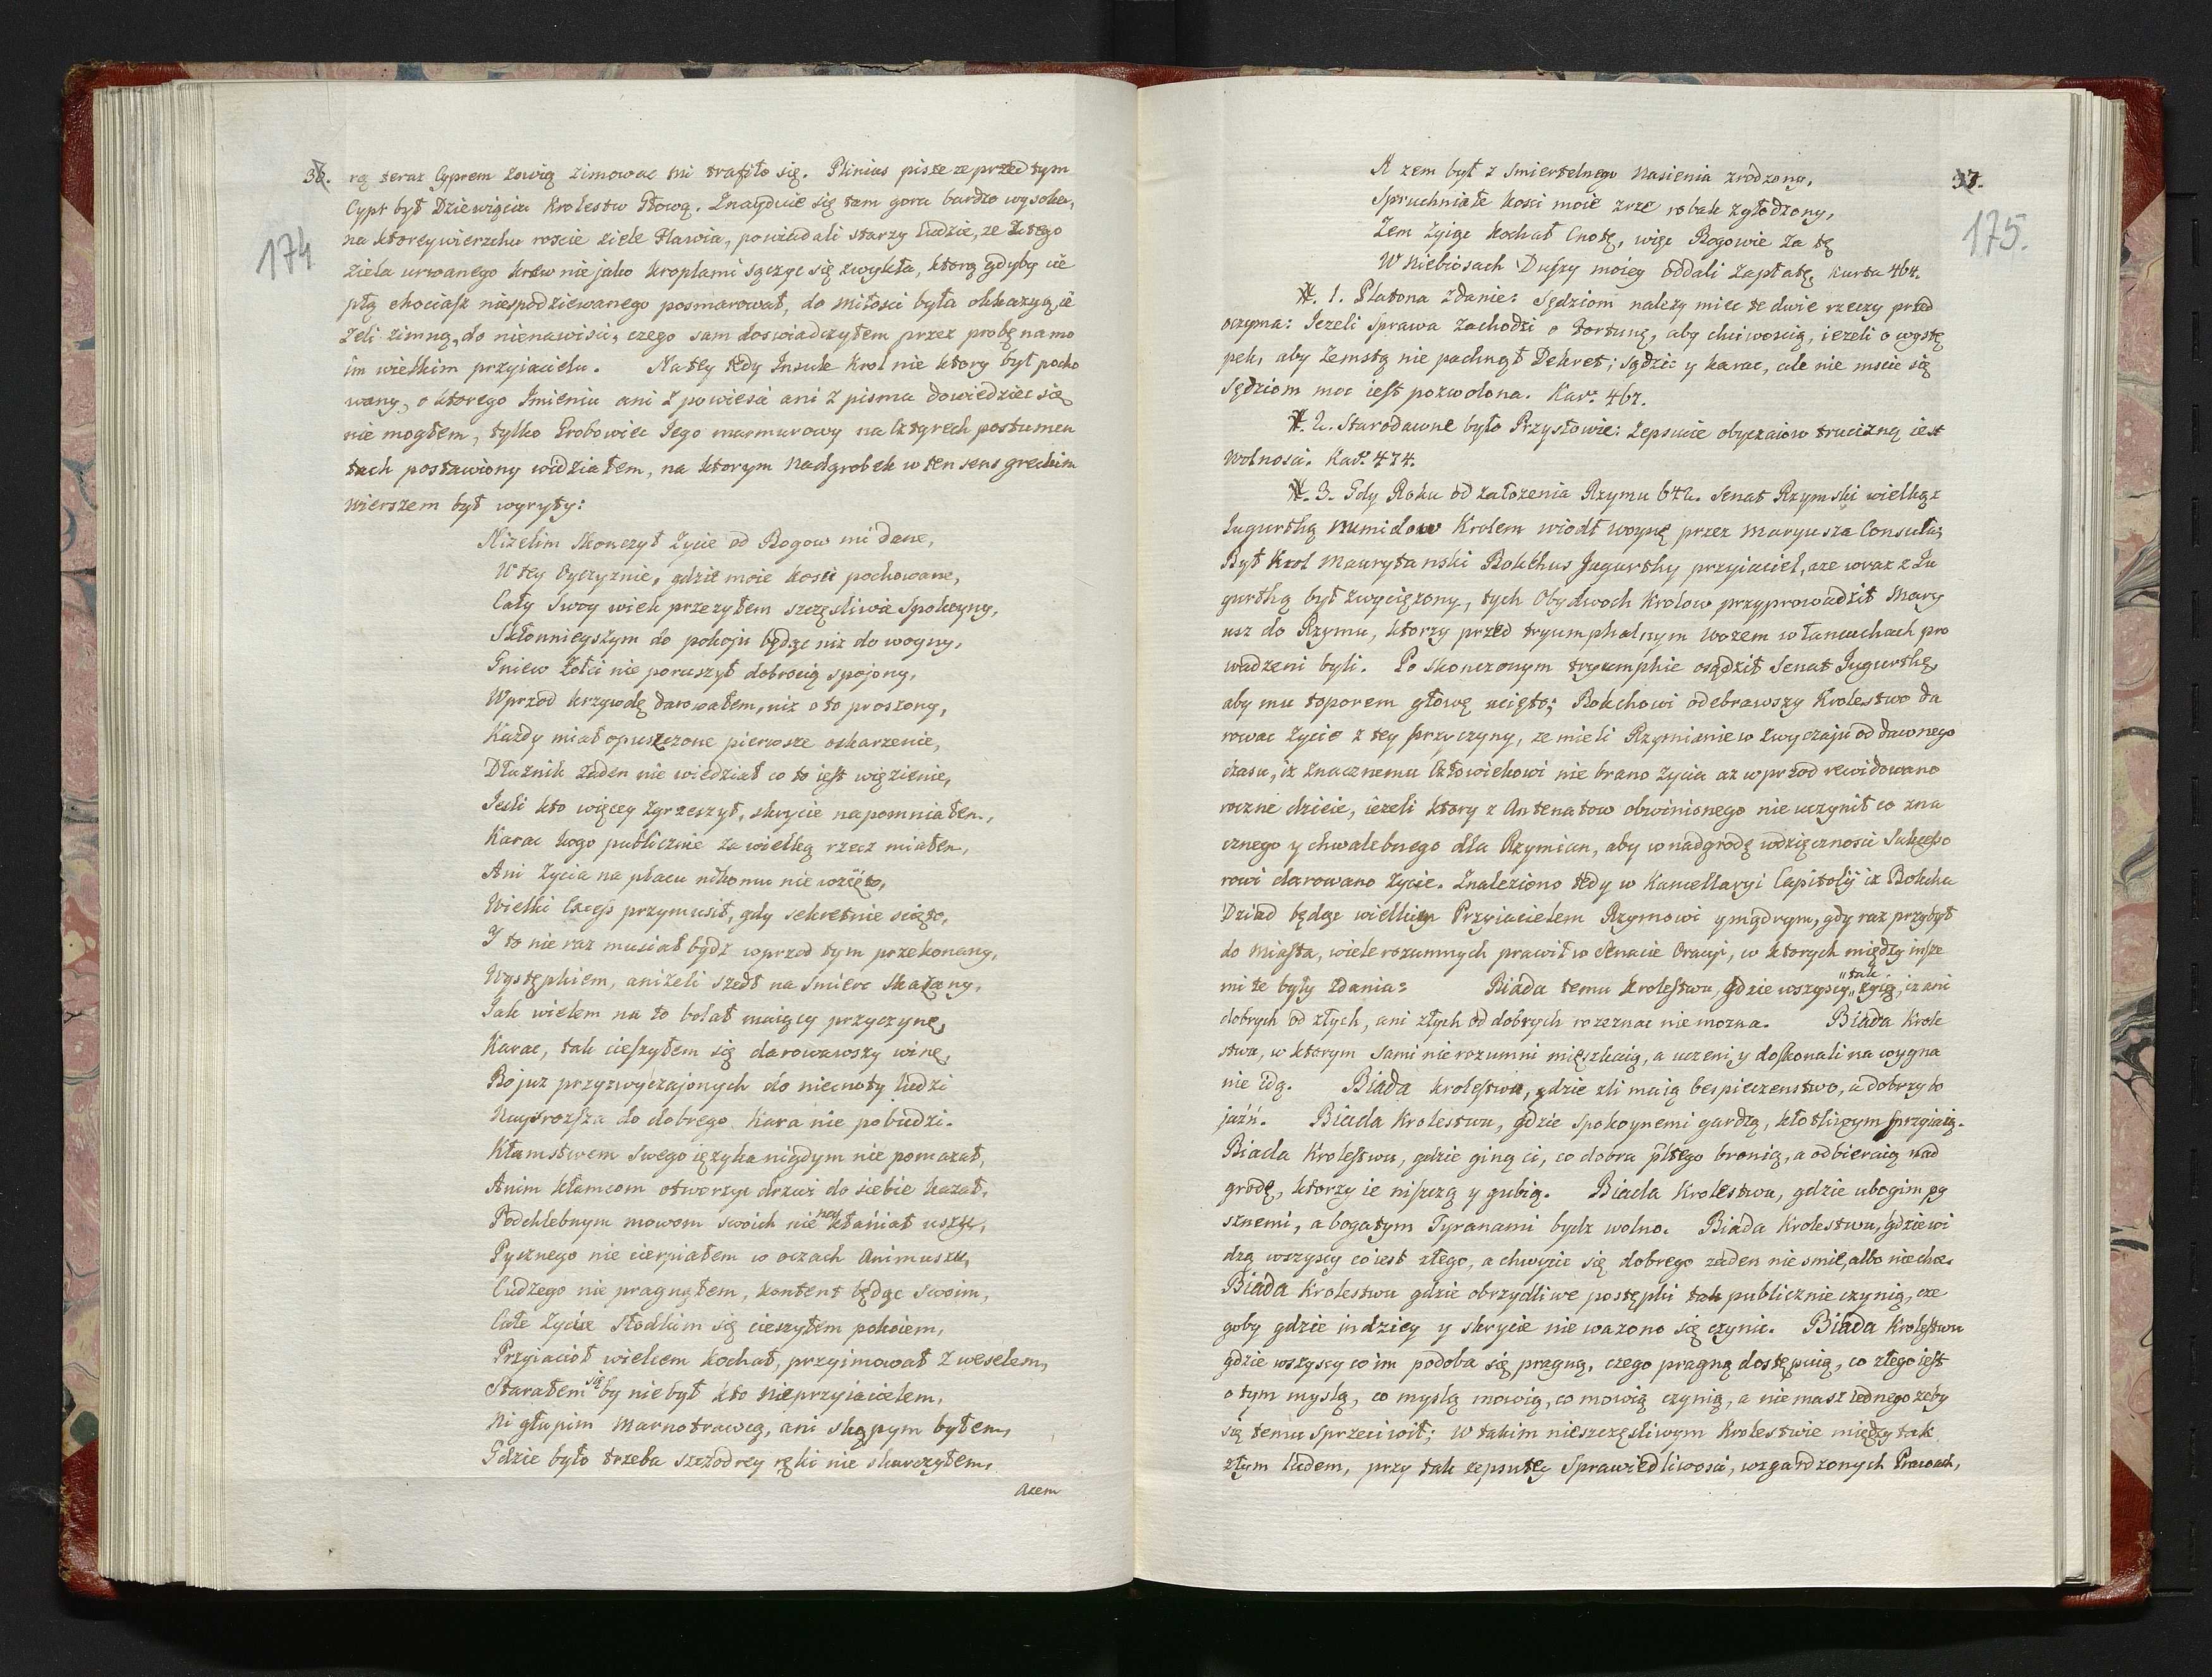 36. rą teraz Cyprem zowią zimowac mi trafiło się. Plinius pisze ze przed tym
174
Cypr był Dziewięciu Krolestw Głową. Znayduie się tam gora bardzo wysoka,
na ktorey wierzchu roscie ziele Flawia, powiadali starzy ludzie, ze z tego
ziela urwanego krew nie jako kroplami sączyc się zwykła, ktorą gdyby cie
płą chociasz niespodziewanego posmarował, do miłosci była okkazyą, ie
zeli zimną, do nienawisci, czego sam doswiadczyłem przez probę na mo
im wielkim przyiacielu. Na tey tedy Insule Krol nie ktory był pocho
wany, o ktorego Imieniu ani z powiesci ani z pisma dowiedziec się
nie mogłem, tylko Grobowiec Iego marmurowy na Cztyrech postumen
tach postawiony widziałem, na ktorym Nadgrobek w ten sens greckim
wierszem był wyryty:
Nizelim skonczył zycie od Bogow mi dane,
W tey Oyczyznie, gdzie moie kosci pochowane,
Cały swoy wiek przezyłem szczęsliwie spokoyny,
Skłonnieyszym do pokoju będąc niz do woyny,
Gniew żołci nie poruszył dobrocią spojony,
Wprzod krzywdę darowałem, niz o to proszony,
Kazdy miał opuszczone pierwsze oskarzenie,
Dłuznik zaden nie wiedział co to iest więzienie,
Iesli kto więcey zgrzeszył, skrycie napomniałem,
Karac kogo publicznie za wielką rzecz miałem,
Ani zycia na placu nikomu nie wzięto,
Wielki Excess przymusił, gdy sekretnie scięto,
Y to nie raz musiał bydz wprzod tym przekonany,
Występkiem, anizeli szedł na smierc skazany,
Iak wielem na to bolał maiący przyczynę,
Karac, tak cieszyłem się darowawszy winę,
Bo juz przyzwyczajonych do niecnoty ludzi
Naysrozsza do dobrego kara nie pobudzi.
Kłamstwem swego ięzyka nigdym nie pomazał,
Anim kłamcom otworzyc drzwi do siebie kazał,
Podchlebnym mowom swoich nie nakłaniał uszu,
Pysznego nie cierpiałem w oczach animuszu,
Cudzego nie pragnąłem, kontent będąc swoim,
Całe zycie słodkim się cieszyłem pokoiem,
Przyiacioł wielcem kochał, przyimował z weselem,
Starałem się by niebył kto nieprzyiacielem,
Ni głupim marnotrawcą, ani skąpym byłem,
Gdzie było trzeba szczodrey ręki nie skurczyłem,
Azem
37.
175.
A zem był z smiertelnego nasienia zrodzony,
Spruchniałe kosci moie zrze robak zgłodzony,
Zem zyiąc kochał Cnotę, więc Bogowie za tę
W Niebiosach Duszy moiey oddali zapłatę. Karta 464.
#. 1. Platona zdanie: Sędziom nalezy miec te dwie rzeczy przed
oczyma: Iezeli sprawa zachodzi o fortunę, aby chciwoscią, iezeli o wystę
pek, aby zemstą nie pachnął Dekret; sądzic y karac, ale nie mscic się
Sędziom moc iest pozwolona. Kar. 467.
#. 2. Starodawne było Przysłowie: Zepsucie obyczaiow trucizną iest
wolnosci. Kar. 474.
#. 3. Gdy Roku od załozenia Rzymu 642. Senat Rzymski wielką z
Jugurthą Numidow Krolem wiodł woynę przez Maryusza Consula,
Był Krol Maurytanski Bokkhus Jugurthy przyiaciel, a ze wraz z Iu
gurthą był zwycięzony, tych Obydwoch Krolow przyprowadził Mary
usz do Rzymu, ktorzy przed tryumphalnym wozem w łancuchach pro
wadzeni byli. Po skonczonym tryumphie osądził Senat Jugurthę,
aby mu toporem głowę ucięto; Bokchowi odebrawszy Krolestwo da
rowac zycie z tey przyczyny, ze mieli Rzymianie w zwyczaju od dawnego
czasu, iz znacznemu Człowiekowi nie brano zycia az wprzod rewidowano
roczne dzieie, iezeli ktory z Antenatow obwinionego nie uczynił co zna
cznego y chwalebnego dla Rzymian, aby w nadgrodę wdzięcznosci Sukcesso
rowi darowano zycie. Znaleziono tedy w Kancellaryi Capitoly iz Bokcha
Dziad będąc wielkim Przyiacielem Rzymowi y mądrym, gdy raz przybył
do miasta, wiele rozumnych prawił w Senacie Oracyi, w ktorych między insze
mi te były zdania: Biada temu Krolestwu, gdzie wszyscy „tak„ zyią, iz ani
dobrych od złych, ani złych od dobrych rozeznac nie mozna. Biada Krole
stwu, w ktorym sami nierozumni mięszkaią, a uczeni y doskonali na wygna
nie idą. Biada krolestwu, gdzie zli maią bespieczenstwo, a dobrzy bo
jaźń. Biada Krolestwu, gdzie spokoynemi gardzą, kłotliwym sprzyiaią.
Biada Krolestwu, gdzie giną ci, co dobra pltego bronią, a odbieraią nad
grodę, ktorzy ie niszczą y gubią. Biada Krolestwu, gdzie ubogim py
sznemi, a bogatym Tyranami bydz wolno. Biada Krolestwu, gdzie wi
dzą wszyscy co iest złego, a chwycic się dobrego zaden nie smie, albo nie chce.
Biada Krolestwu gdzie obrzydliwe postępki tak publicznie czynią, cze
goby gdzie indziey y skrycie nie wazono się czynic. Biada Krolestwu
gdzie wszyscy co im podoba się pragną, czego pragną dostępuią, co złego iest
o tym myslą, co myslą mowią, co mowią czynią, a nie masz iednego zeby
się temu sprzeciwił; W takim nieszczęsliwym Krolestwie między tak
złym ludem, przy tak zepsutey Sprawiedliwosci, wzgardzonych Prawach,